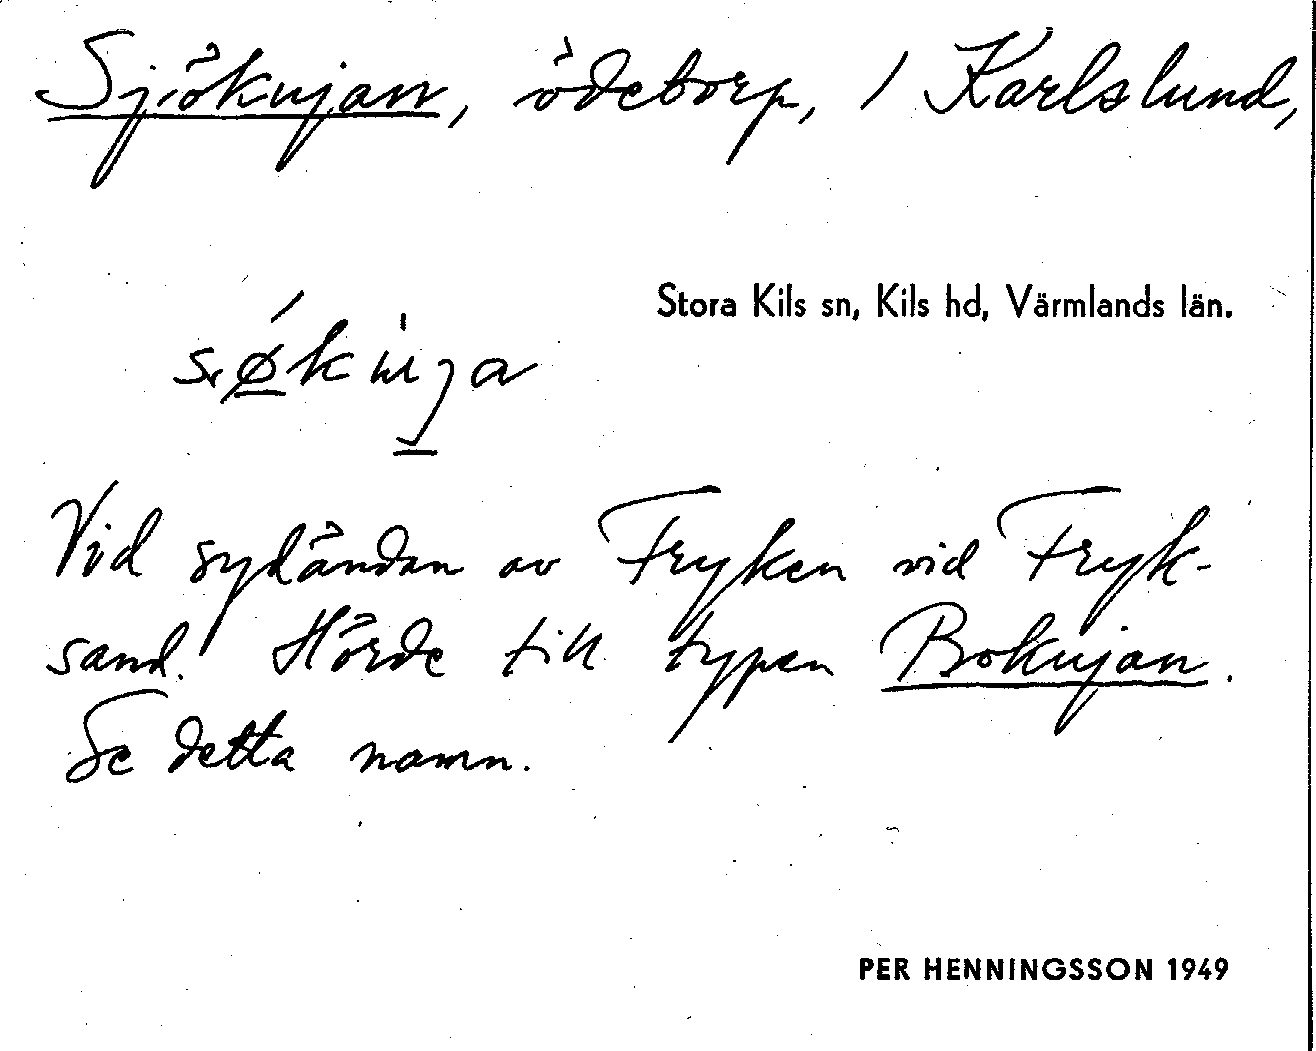 Sjökujan, ödetorp, / Karlslund,
Stora Kils sn, Kils hd, Värmlands län.
Vid sydändan av Fryken vid Fryk-
sand. Hörde till typen Bokujan.
Se detta namn.
PER HENNINGSSON 1949